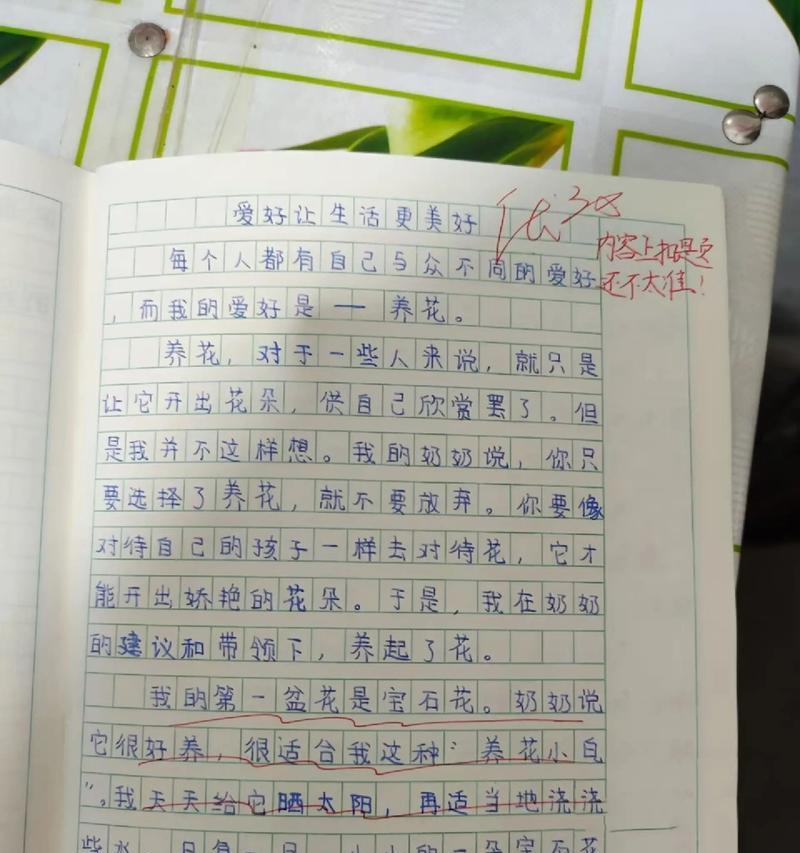 爱好让生活更美好
优 38
内容上把握是
还不太准！
每个人都有自己与众不同的爱好
，而我的爱好是——养花。
养花，对于一些人来说，就只是
让它开出花朵，供自己欣赏罢了。但
是我并不这样想。我的奶奶说，你只
要选择了养花，就不要放弃。你要像
对待自己的孩子一样去对待花，它才
能开出娇艳的花朵。于是，我在奶奶
的建议和带领下，养起了花。
我的第一盆花是宝石花。奶奶说
它很好养，很适合我这种“养花小白
”。我天天给它晒太阳，再适当地浇浇
些水，一日复一日，小小的一朵宝石花